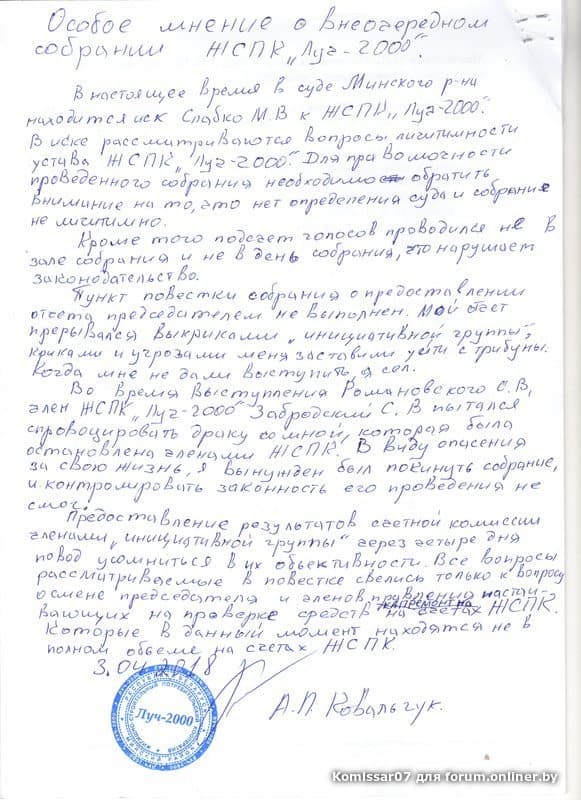 Особое мнение о внеочередном
собрании ЖСПК „Луч-2000".
В настоящее время в суде Минского р-на
находится иск Слабко М.В к ЖСПК „Луч-2000".
В иске рассматриваются вопросы личитимности
устава ЖСПК „Луч-2000". Для правомочности
проведенного собрания необходимо обратить
внимание на то, что нет определения суда и собрание
не личитимно.
Кроме того подсчет голосов проводился не в
зале собрания и не в день собрания, что нарушает
законодательство.
Пункт повестки собрания о предоставлении
отчета председателем не выполнен. Мой отчет
прерывался выкриками „инициативной группы",
криками и угрозами меня заставили уйти с трибуны.
Когда мне не дали выступить, я сел.
Во время выступления Романовского С.В,
член ЖСПК „Луч-2000" Забродский С.В пытался
спровоцировать драку со мной, которая была
остановлена членами ЖСПК. В виду опасения
за свою жизнь, я вынужден был покинуть собрание,
и контромировать законность его проведения не
смог.
Предоставление результатов счетной комиссии
членами „инициативной группы" через четыре дня
повод усомниться в их обьективности. Все вопросы
рассматриваемые в повестке свелись только к вопросу
о смене председателя и членов правления настаи-
вающих на проверке средств на капремонт на счетах ЖСПК.
Которые в данный момент находятся не в
полном обьеме на счетах ЖСПК.
3.04.2018
А.П. Ковальчук.
Луч-2000
Komissar07 для forum.onliner.by